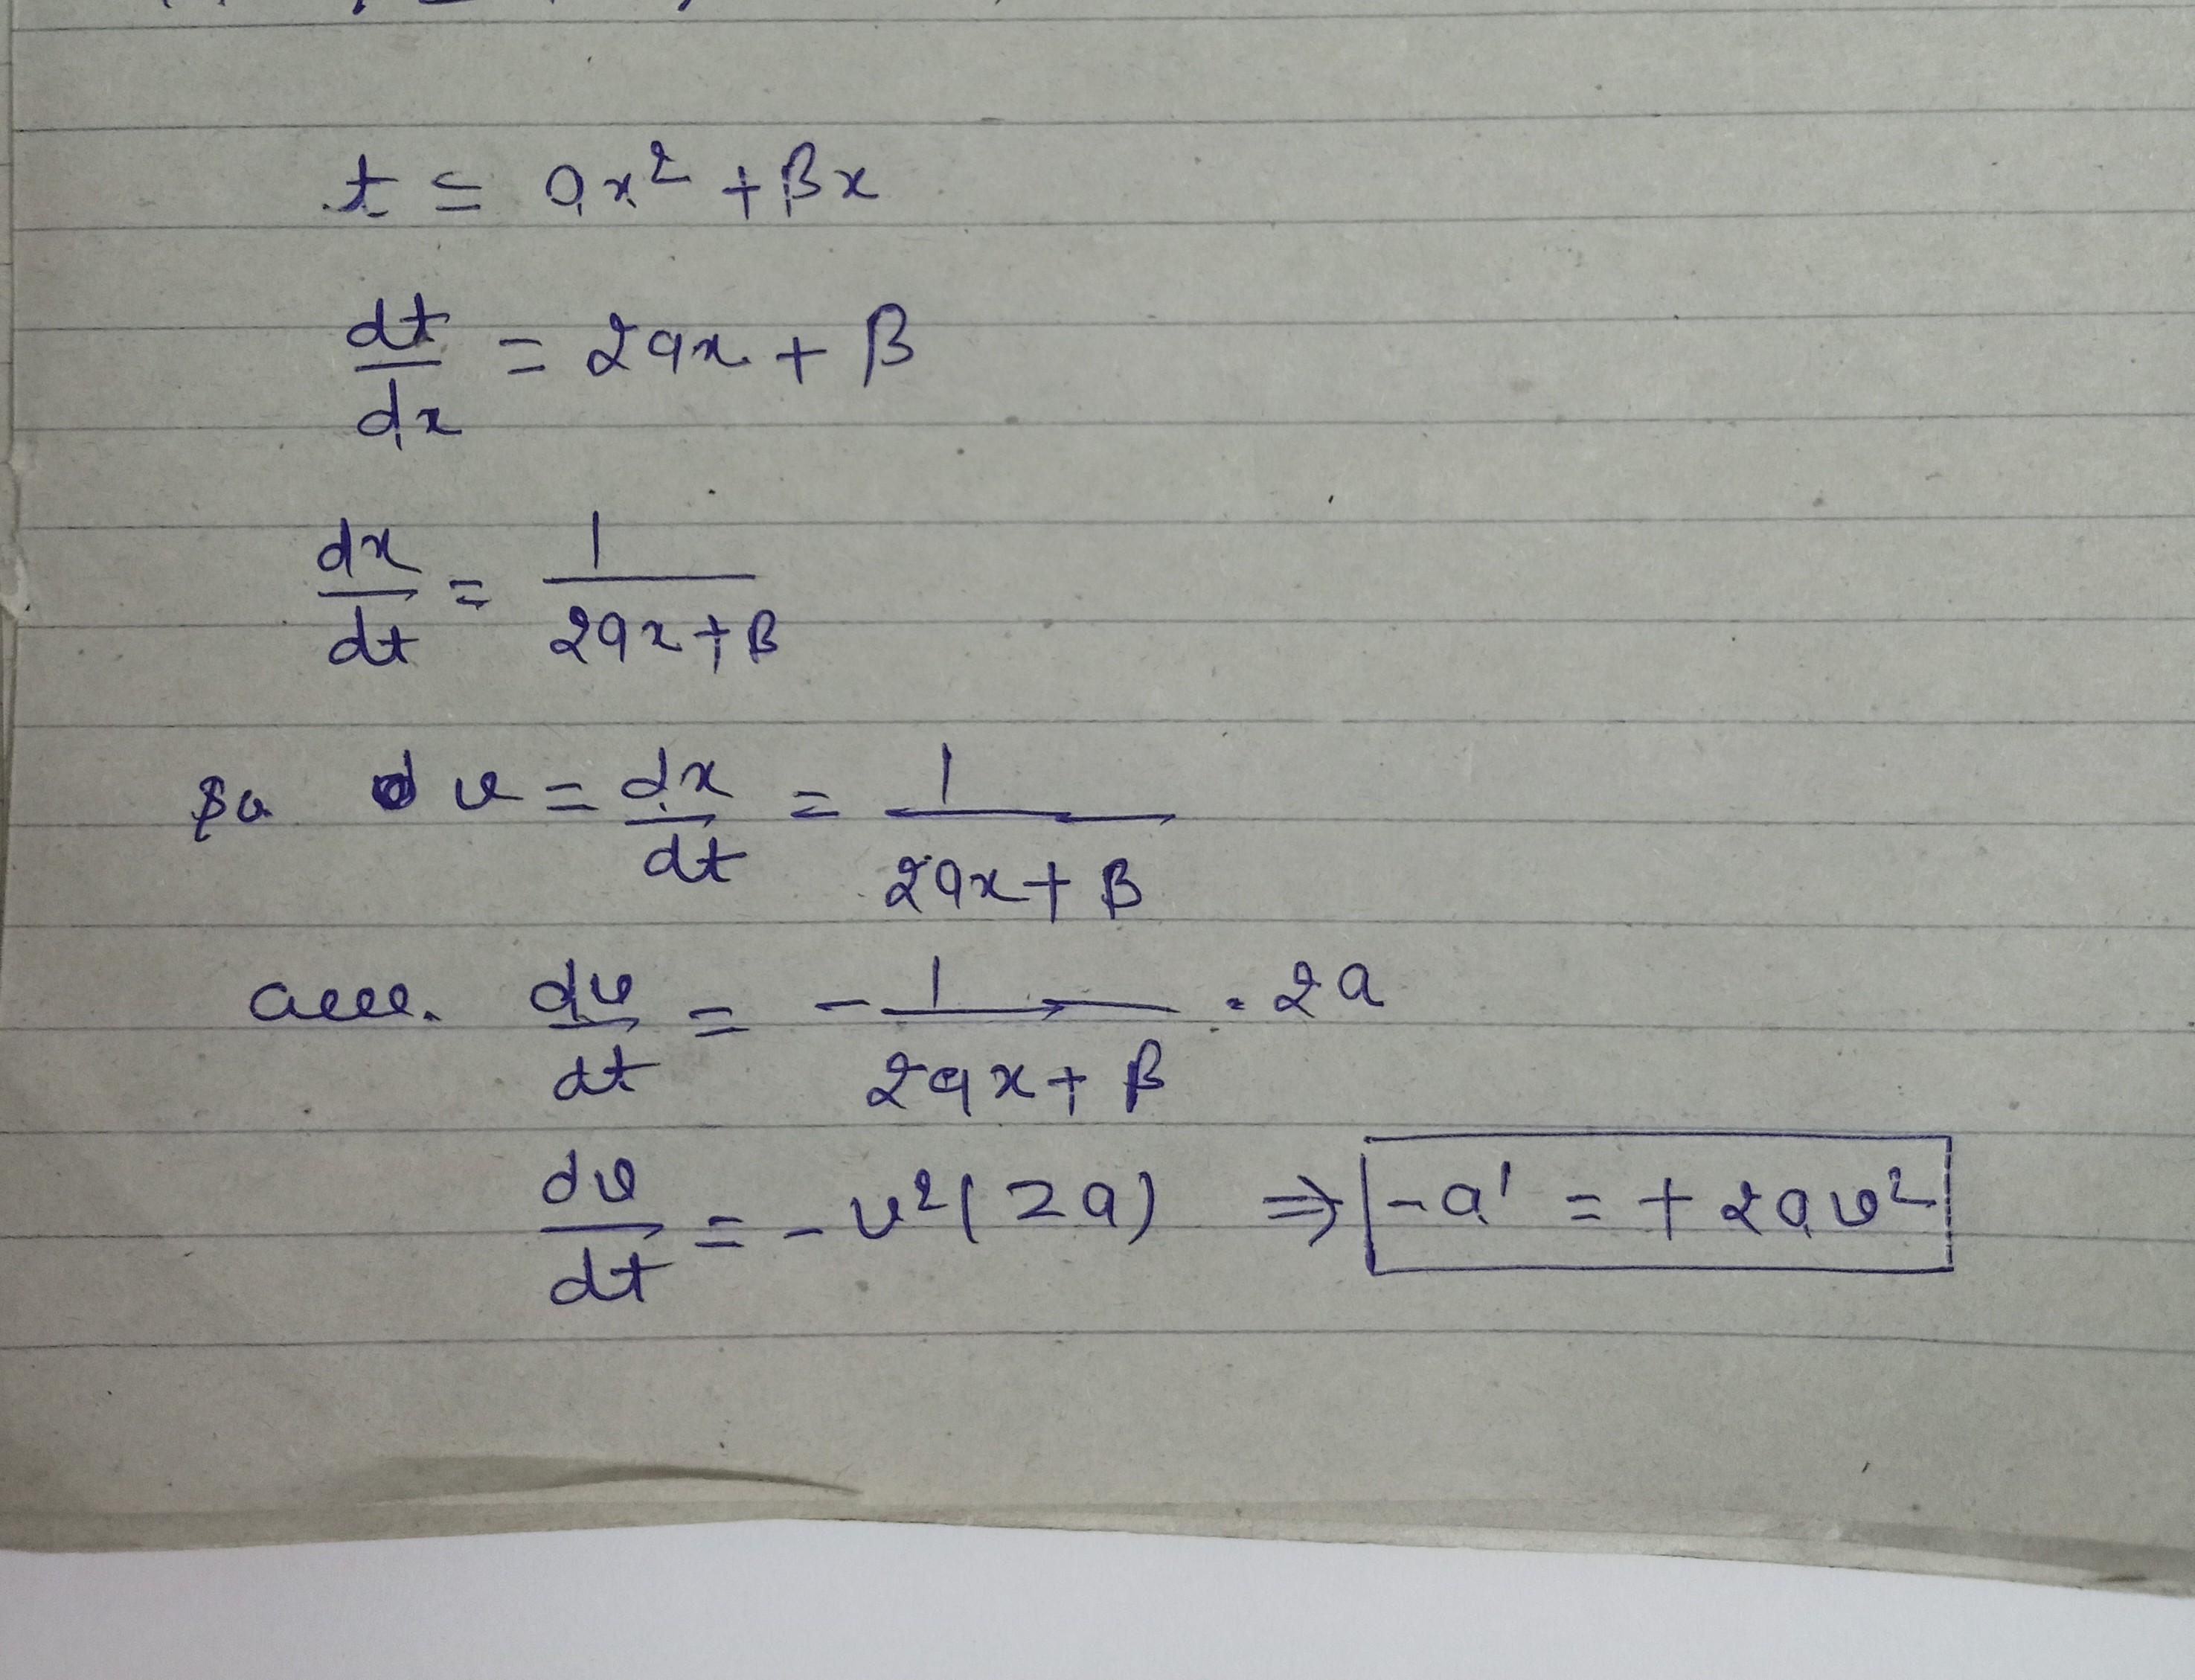 t = ax² + βx
dt/dx = 2ax + β
dx/dt = 1/(2ax+β)
so v = dx/dt = 1/(2ax+β)
acc. dv/dt = -1/(2ax+β) · 2a
dv/dt = -v²(2a) ⇒ -a' = +2av²